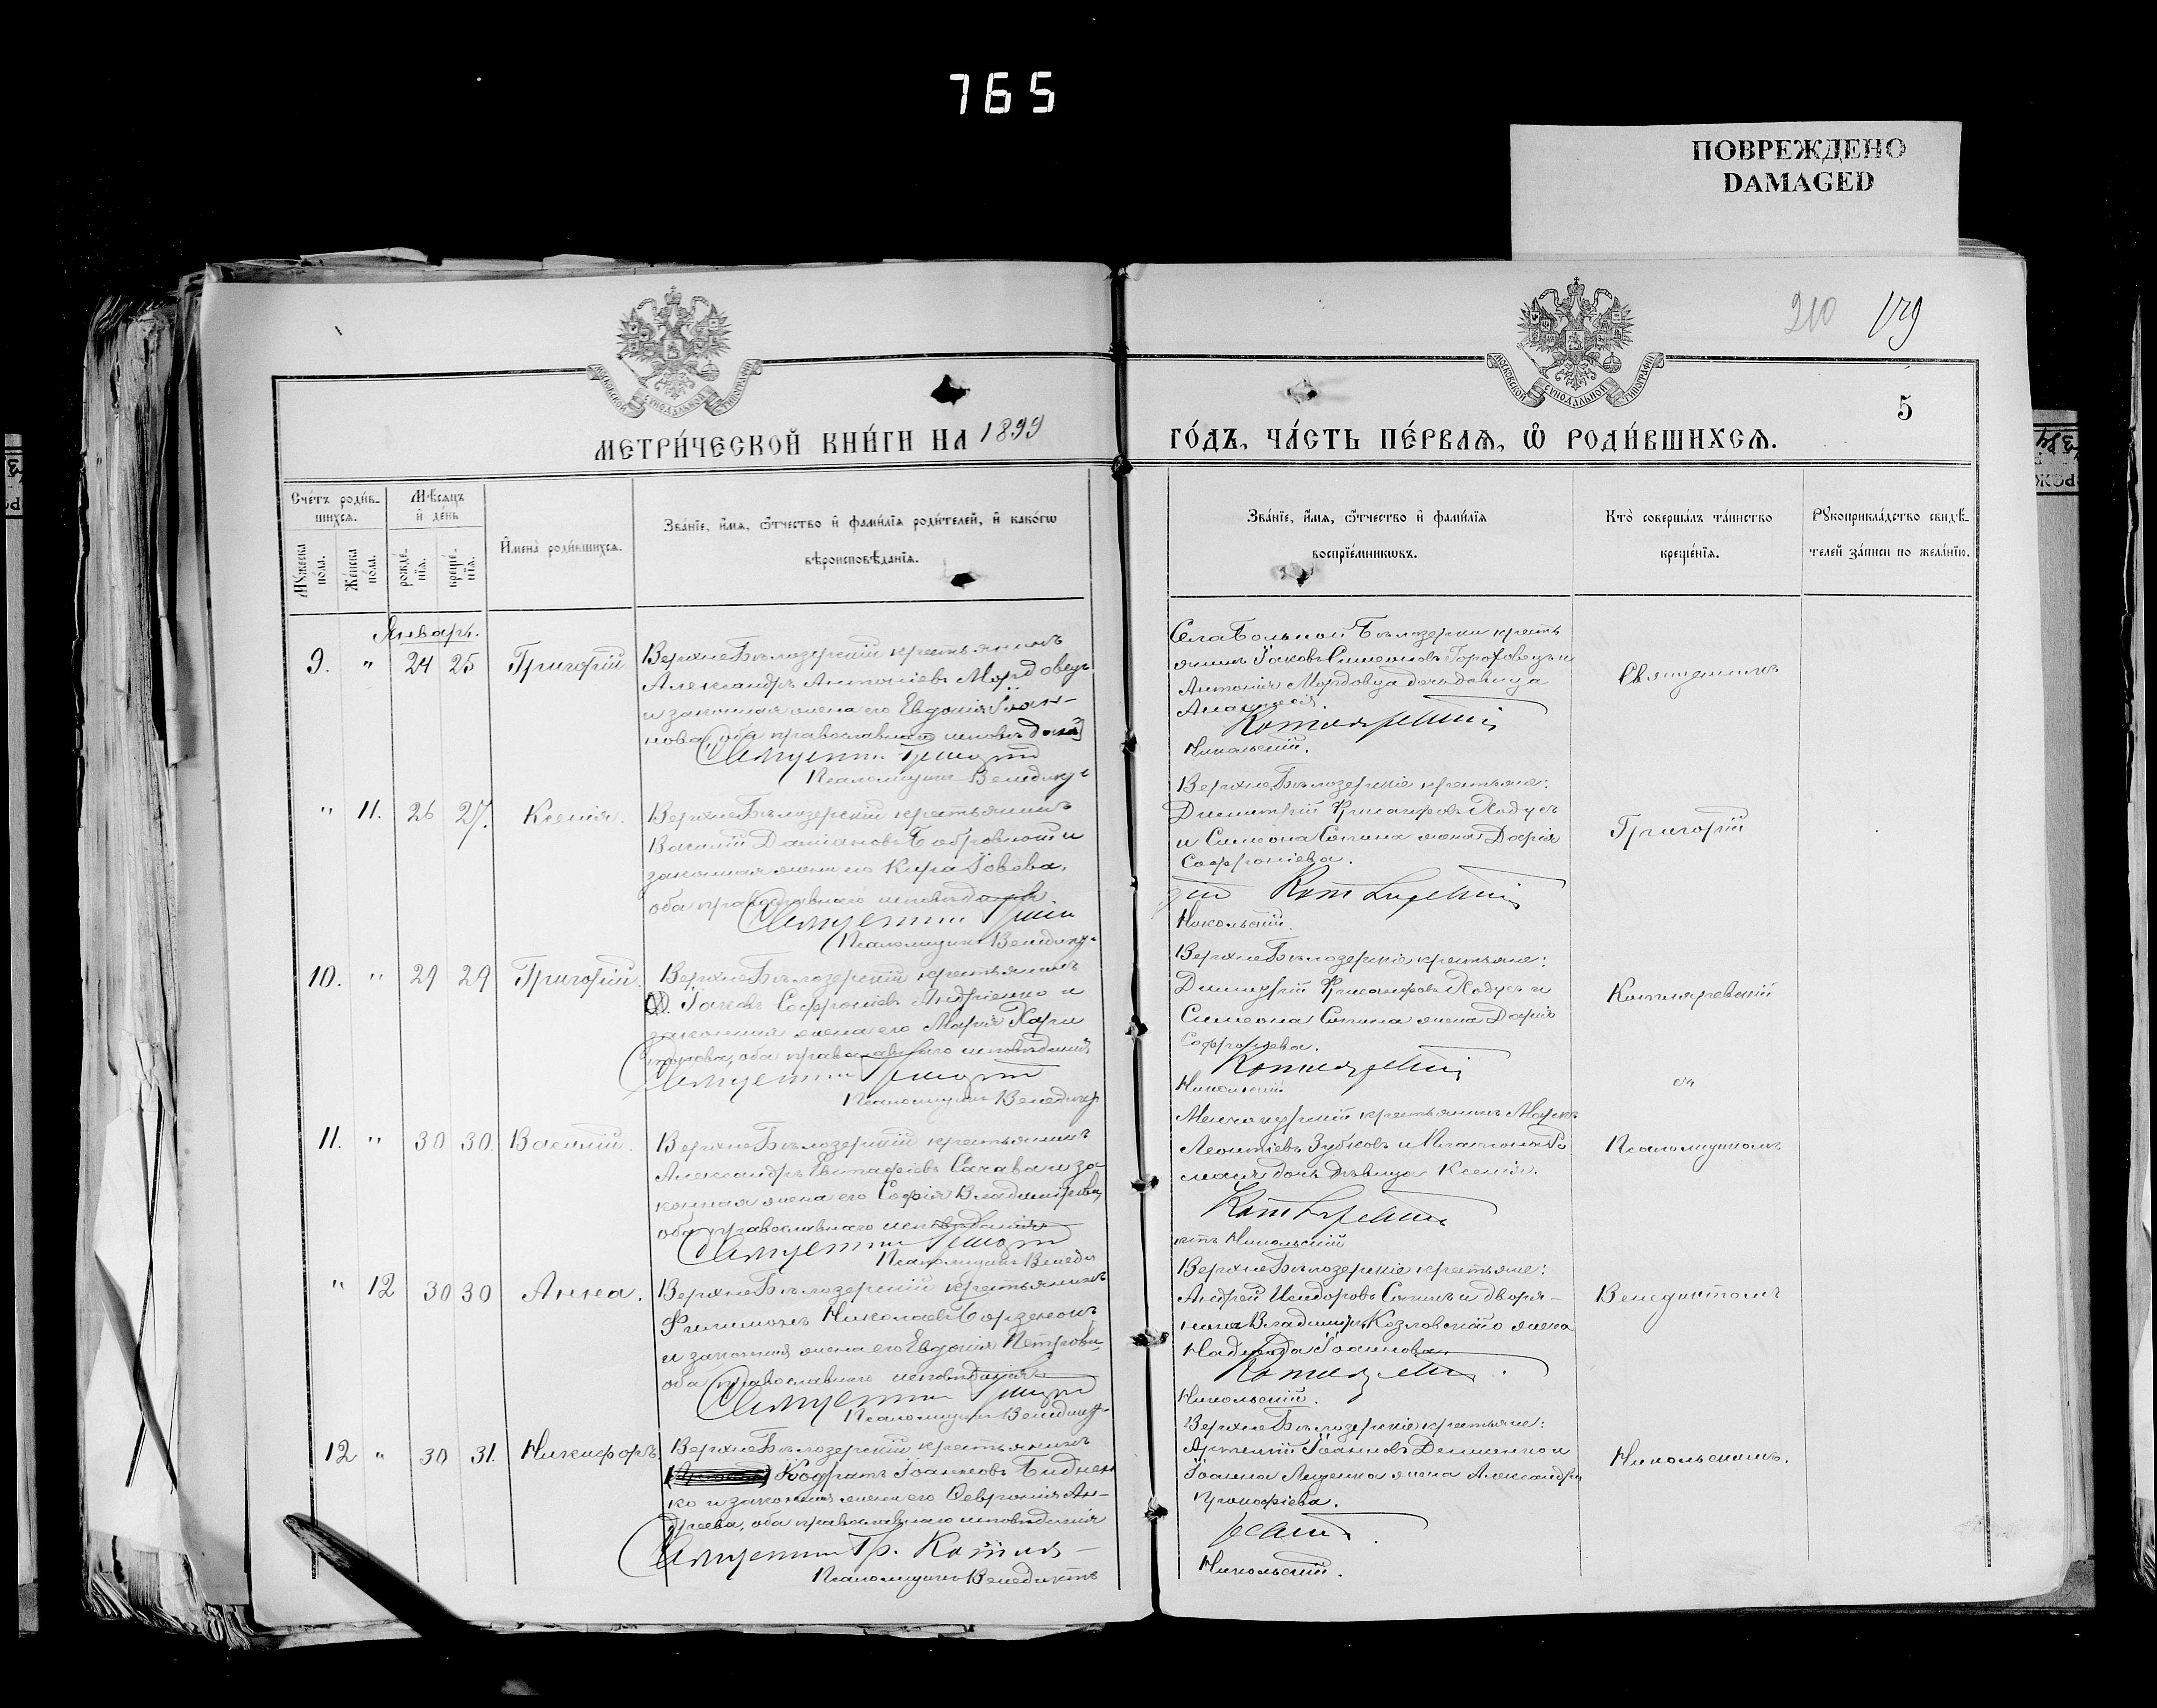 765
ПОВРЕЖДЕНО
DAMAGED
210 179
5
МЕТРИ́ЧЕСКОЙ КНИ́ГИ НА 1899
ГО́ДЪ, ЧА́СТЬ ПЕ́РВАЯ, Ѽ РОДИ́ВШИХСЯ.
Сче́тъ роди́в-
шихся.
Му́жеска пола.
Же́нска по́ла.
Мѣ́сяцъ
и҆ де́нь
рожде́-
нїя.
креще́-
нїя.
И҆мена̀ роди́вшихся.
Зва́нїе, и҆́мя, ѻ҆́тчество и҆ фами́лїя роди́телей, и҆ како́гѡ
вѣроисповѣ́данїя.
Зва́нїе, и҆́мя, ѻ҆́тчество и҆ фами́лїя
воспрїе́мникѡвъ.
Кто̀ соверша́лъ та́инство
креще́нїя.
Рукоприкла́дство свидѣ́-
телей за́писи по жела́нїю.
Январь.
9. " 24 25 Григорій
ВерхнеБѣлозерскій крестьянинъ
Александръ Антоніевъ Мордовецъ
и законная жена его Евдокія Іоан-
нова, оба православнаго исповѣданія
Священникъ Григорій
Псаломщикъ Венедикт
Села Большой Бѣлозерки кресть
янинъ Іаковъ Симеоновъ Гороховецъ и
Антонія Мордовца дочь девица
Анастасія.
Котляревскій
Никольскій.
Священникъ
" 11. 26 27. Ксенія.
ВерхнеБѣлозерскій крестьянинъ
Василій Даміановъ Бобровной и
законная жена его Кира Іовова,
оба православнаго исповѣданія.
Священникъ Григо
Псаломщикъ Венедикт
ВерхнеБѣлозерскіе крестьяне:
Димитрій Никифоровъ Кодусъ
и Симеона Сопина жена Дарія
Софроніева.
рій Котляревскій
Никольскій.
Григорій
10. " 29 29 Григорій.
ВерхнеБѣлозерскій крестьянинъ
Іаковъ Софроніевъ Андріенко и
законная жена его Марія Хари
тонова, оба православнаго исповѣданія
Священникъ Григорій
Псаломщикъ Венедикт
ВерхнеБѣлозерскіе крестьяне:
Димитрій Никифоровъ Кодусъ и
Симеона Сопина жена Дарія
Софроніева.
Котляревскій
Никольскій
Котляревскій
съ
11. " 30 30. Василій.
ВерхнеБѣлозерскій крестьянинъ
Александръ Евстафіевъ Сахава и за
конная жена его Софія Владимірова,
оба православнаго исповѣданія
Священникъ Григорій
Псаломщикъ Венеди
крестьянинъ Маркъ
Леонтіевъ Зубковъ и
дочь дѣвица Ксенія.
Котляревскій
ктъ Никольскій
Псаломщикомъ
" 12 30 30 Анна.
ВерхнеБѣлозерскій крестьянинъ
Филимонъ Николаевъ Борзенокъ
и законная жена его Евдокія Петрова,
оба православнаго исповѣданія
Священникъ Григорій
Псаломщикъ Венедикт
ВерхнеБѣлозерскіе крестьяне:
Андрей Исидоровъ Сопинъ и дворя-
нина Владиміра Козловскаго жена
Надежда Іоаннова.
Котляревскій
Никольскій.
Венедиктомъ
12 " 30 31. Никифоръ
ВерхнеБѣлозерскій крестьянинъ
Кодратъ Іоанновъ Биднен
ко и законная жена его Февронія Ан-
дреева, оба православнаго исповѣданія
Священникъ Гр. Котля-
Псаломщикъ Венедиктъ
ВерхнеБѣлозерскіе крестьяне:
Артемій Іоанновъ Демченко и
Іоанна Луценка жена Александра
Прокофіева.
Никольскій.
Никольскимъ.